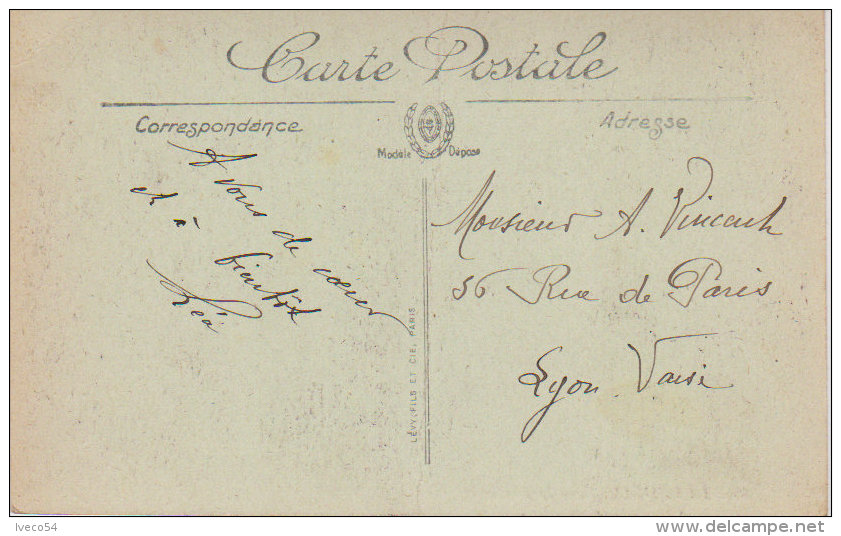 Carte Postale
Correspondance
Adresse
Modèle Déposé
A vous de cœur
et à bientôt
Léa
Monsieur A. Vincent
56 Rue de Paris
Lyon Vaise
LÉVY, FILS ET CIE, PARIS
Iveco54
www.delcampe.net